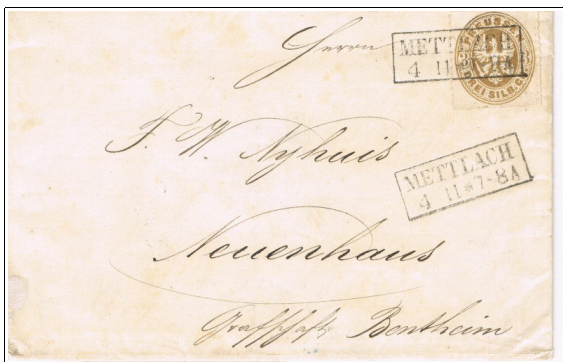 Herrn
METTLACH
4 11 7-8A
PREUSSEN
DREI SILB.G.
F. W. Nyhuis
METTLACH
4 11 * 7-8A
Neuenhaus
Grafschaft Bentheim